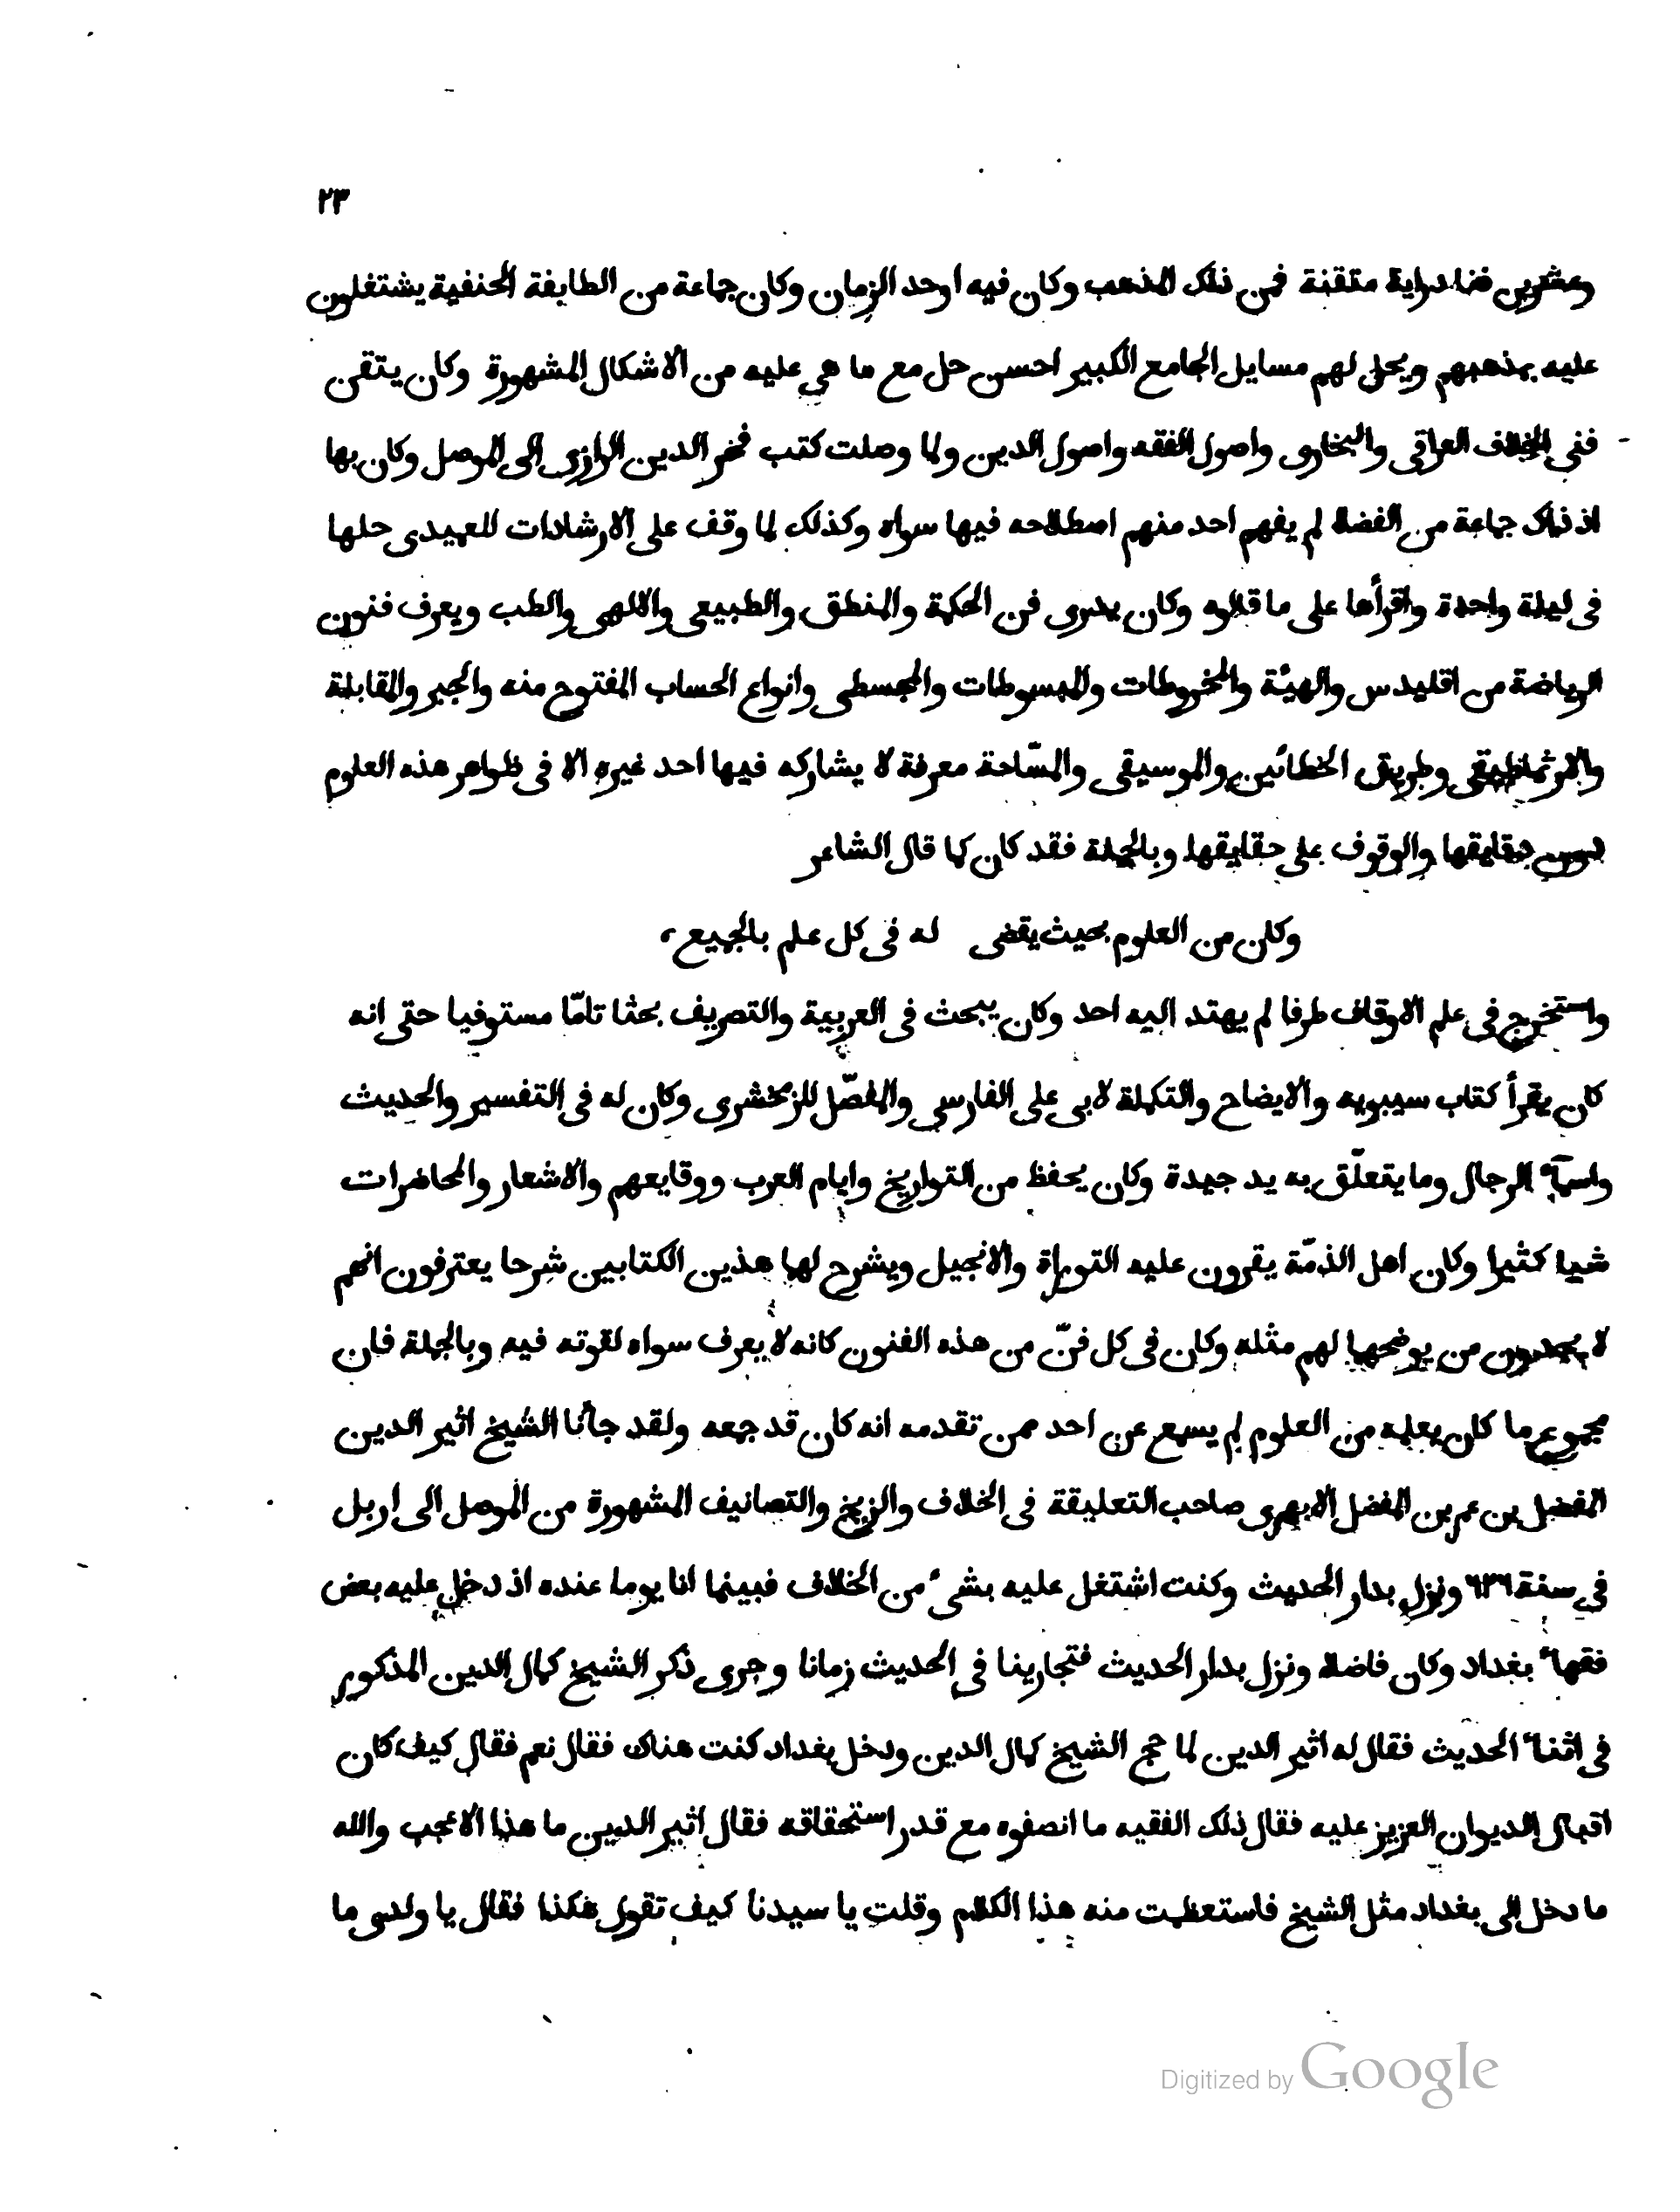 ٢٣
وعشرين فنا دراية متقنة فمن ذلك المذهب وكان فيه اوحد الزمان وكان جماعة من الطايفة الحنفية يشتغلون
عليه بمذهبهم ويحل لهم مسايل الجامع الكبير احسن حل مع ما هى عليه من الاشكال المشهورة وكان يتقن
فنى الخلاف العراقى والبخارى واصول الفقه واصول الدين ولما وصلت كتب فخر الدين الرازى الى الموصل وكان بها
اذ ذاك جماعة من الفضلا لم يفهم احد منهم اصطلاحه فيها سواه وكذلك لما وقف على الارشادات للعميدى حلها
فى ليلة واحدة واقرأها على ما قالوه وكان يدرى فن الحكمة والمنطق والطبيعى والالهى والطب ويعرف فنون
الرياضة من اقليدس والهيئة والمخروطات والمبسوطات والمجسطى وانواع الحساب المفتوح منه والجبر والمقابلة
والارثماطيقى وطريق الخطائين والموسيقى والمسّاحة معرفة لا يشاركه فيها احد غيره الا فى ظواهر هذه العلوم
دون دقايقها والوقوف على حقايقها وبالجملة فقد كان كما قال الشاعر
وكان من العلوم بحيث يقضى له فى كل علم بالجميع،
واستخرج فى علم الاوفاق طرفا لم يهتد اليه احد وكان يبحث فى العربية والتصريف بحثا تامّا مستوفيا حتى انه
كان يقرأ كتاب سيبويه والايضاح والتكملة لابى على الفارسى والمفصّل للزمخشرى وكان له فى التفسير والحديث
واسمآء الرجال وما يتعلّق به يد جيدة وكان يحفظ من التواريخ وايام العرب ووقايعهم والاشعار والمحاضرات
شيا كثيرا وكان اهل الذمّة يقرون عليه التوراة والانجيل ويشرح لهما هذين الكتابين شرحا يعترفون انهم
لا يجدون من يوضحهما لهم مثله وكان فى كل فنّ من هذه الفنون كانه لا يعرف سواه لقوته فيه وبالجملة فان
مجموع ما كان يعلمه من العلوم لم يسمع عن احد ممن تقدمه انه كان قد جمعه ولقد جأنا الشيخ اثير الدين
المفضل بن عمر بن المفضل الابهرى صاحب التعليقة فى الخلاف والزيج والتصانيف المشهورة من الموصل الى اربل
فى سنة ٦٢٦ ونزل بدار الحديث وكنت اشتغل عليه بشىء من الخلاف فبينما انا يوما عنده اذ دخل عليه بعض
فقهاء بغداد وكان فاضلا ونزل بدار الحديث فتجارينا فى الحديث زمانا وجرى ذكر الشيخ كمال الدين المذكور
فى اثناء الحديث فقال له اثير الدين لما حج الشيخ كمال الدين ودخل بغداد كنت هناك فقال نعم فقال كيف كان
اقبال الديوان العزيز عليه فقال ذلك الفقيه ما انصفوه مع قدر استحقاقه فقال اثير الدين ما هذا الا عجب والله
ما دخل الى بغداد مثل الشيخ فاستعظمت منه هذا الكلام وقلت يا سيدنا كيف تقول هكذا فقال يا ولدى ما
Digitized by Google